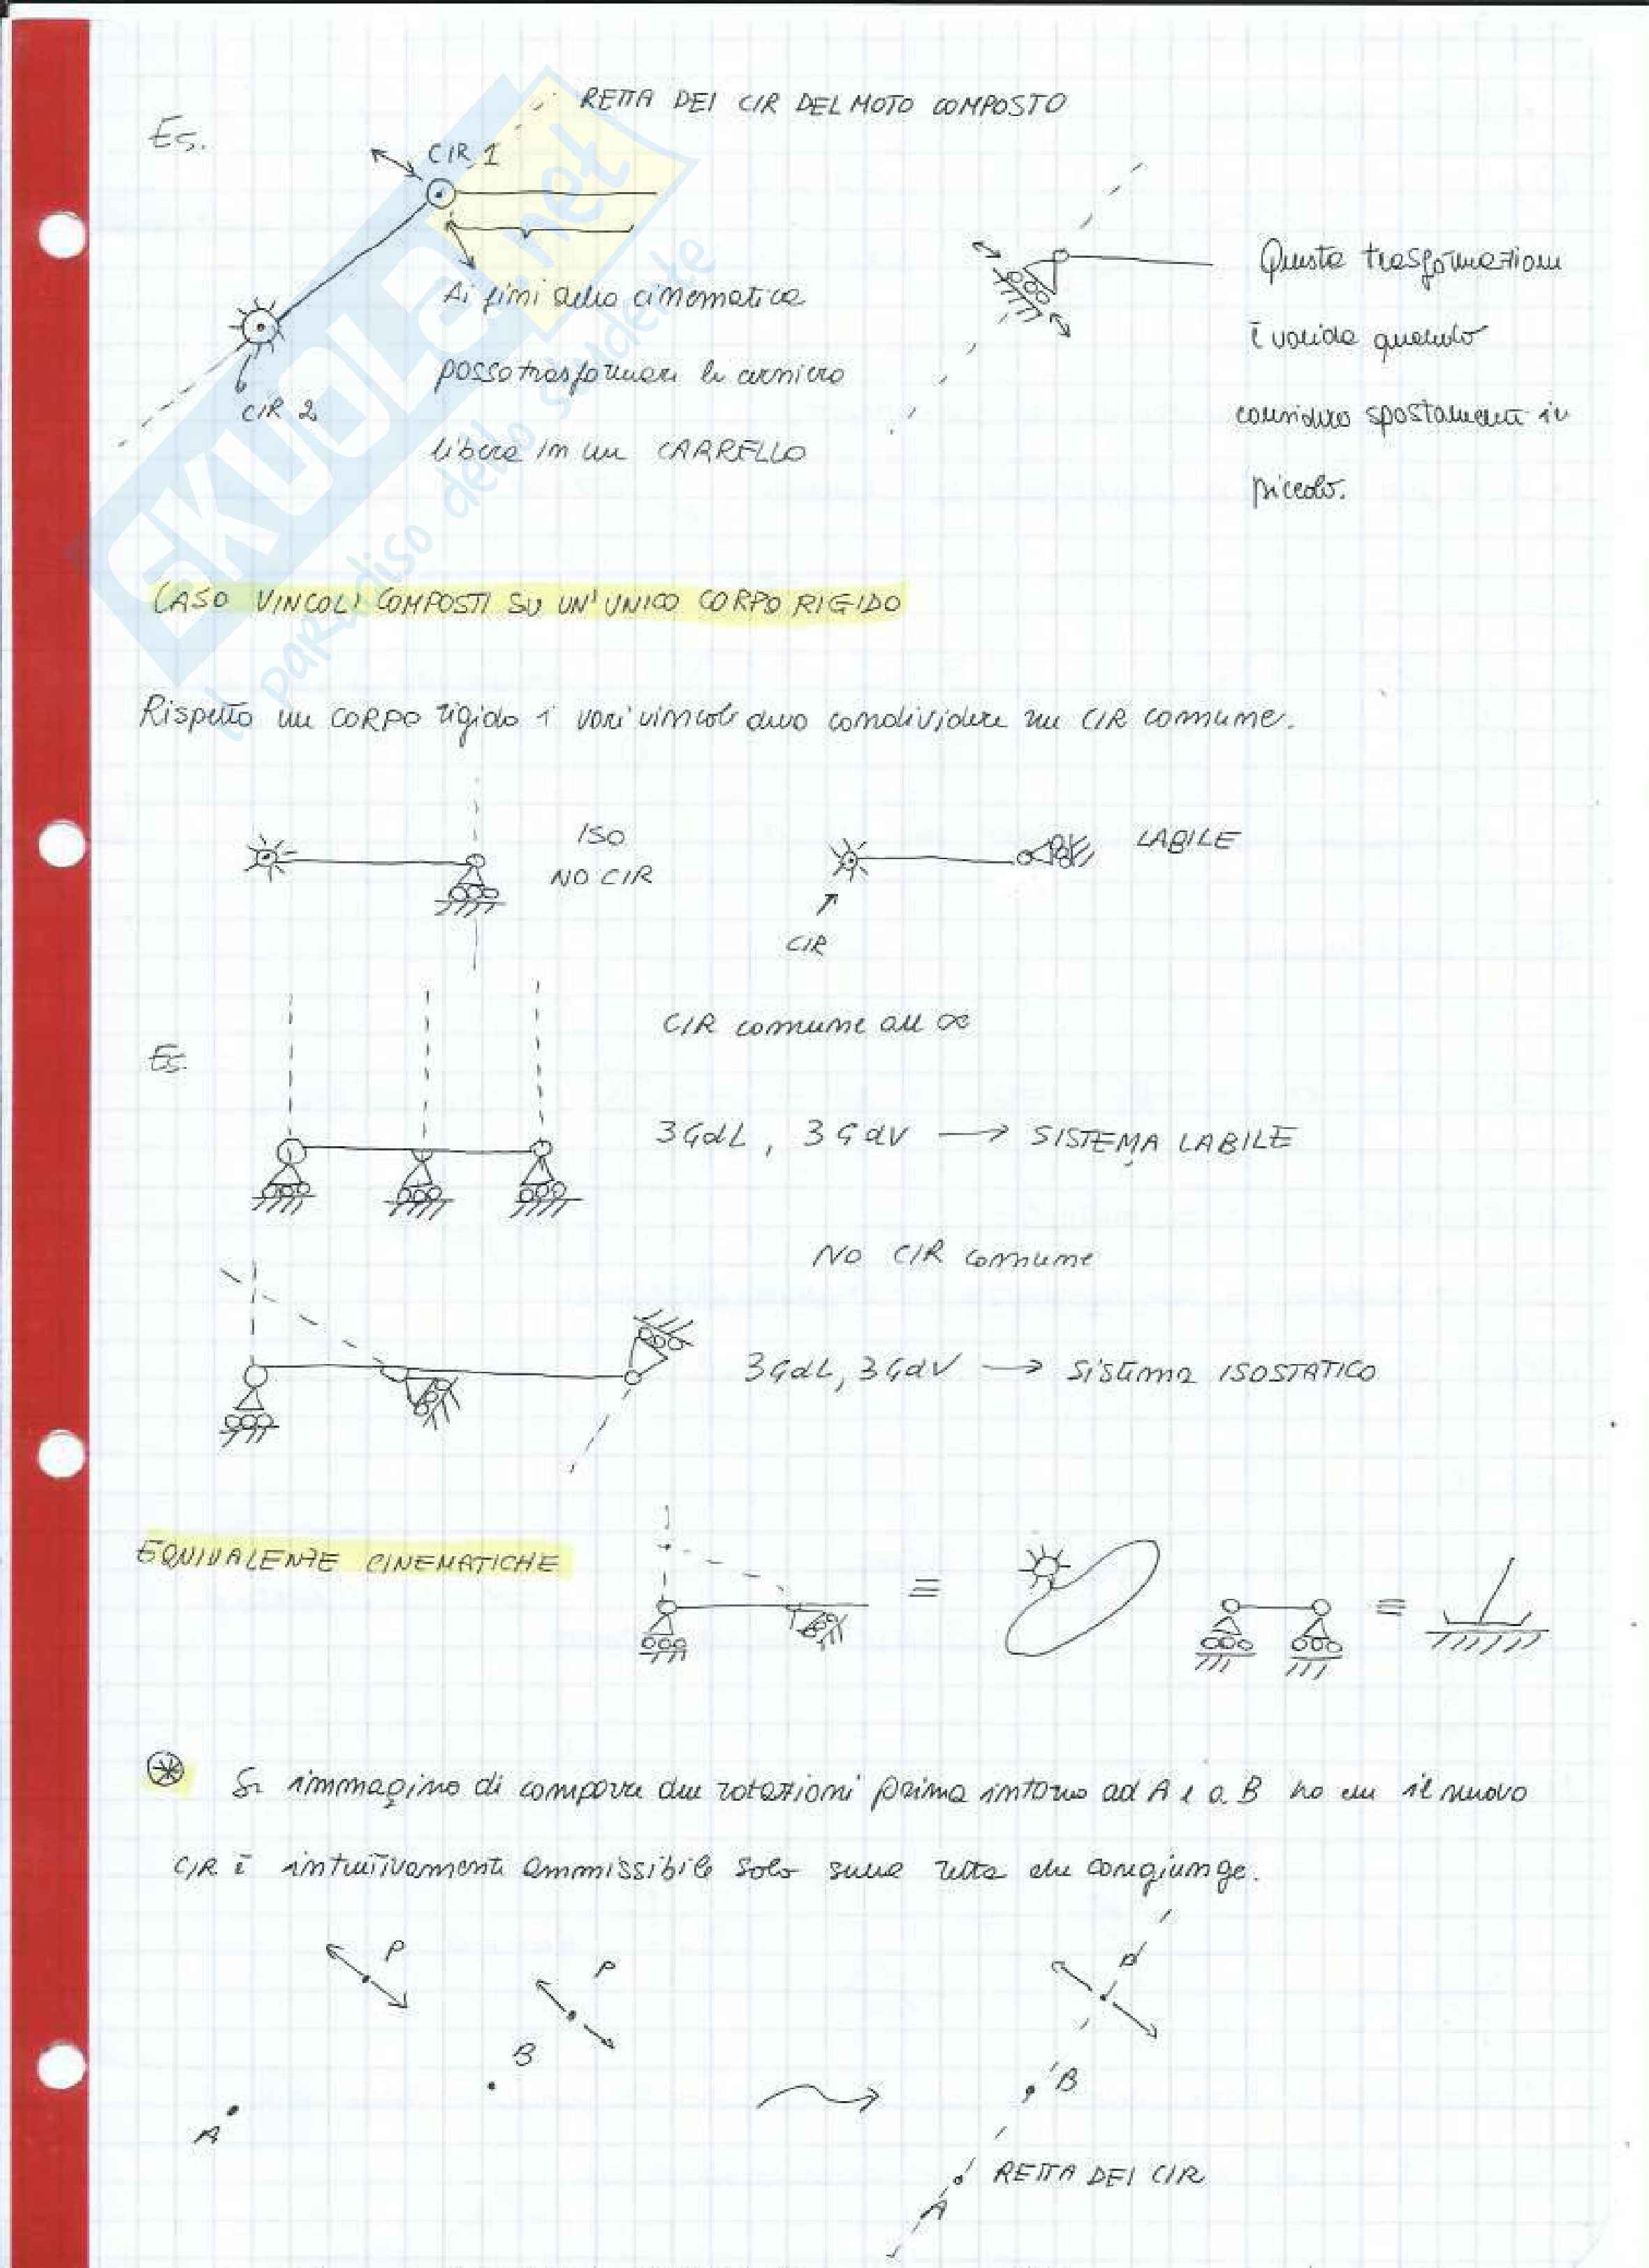 RETTA DEI CIR DEL MOTO COMPOSTO
Es.
CIR 1
CIR 2
Ai fini della cinematica
posso trasformare la cerniera
libera in un CARRELLO
Questa trasformazione
è valida quando
considero spostamenti in
piccolo.
SKUOLA.net
il paradiso dello studente
CASO VINCOLI COMPOSTI SU UN'UNICO CORPO RIGIDO
Rispetto un CORPO rigido i vari vincoli devo condividere un CIR comune.
ISO
NO CIR
LABILE
CIR
Es.
CIR comune all ∞
3GdL, 3GdV → SISTEMA LABILE
NO CIR comune
3GdL, 3GdV → Sistema ISOSTATICO
EQUIVALENTE CINEMATICHE
≡
≡
Se immagino di comporre due rotazioni prima intorno ad A e a B ho che il nuovo
CIR è intuitivamente ammissibile solo sulla retta che congiunge.
P
P
B
A
P
B
A
RETTA DEI CIR